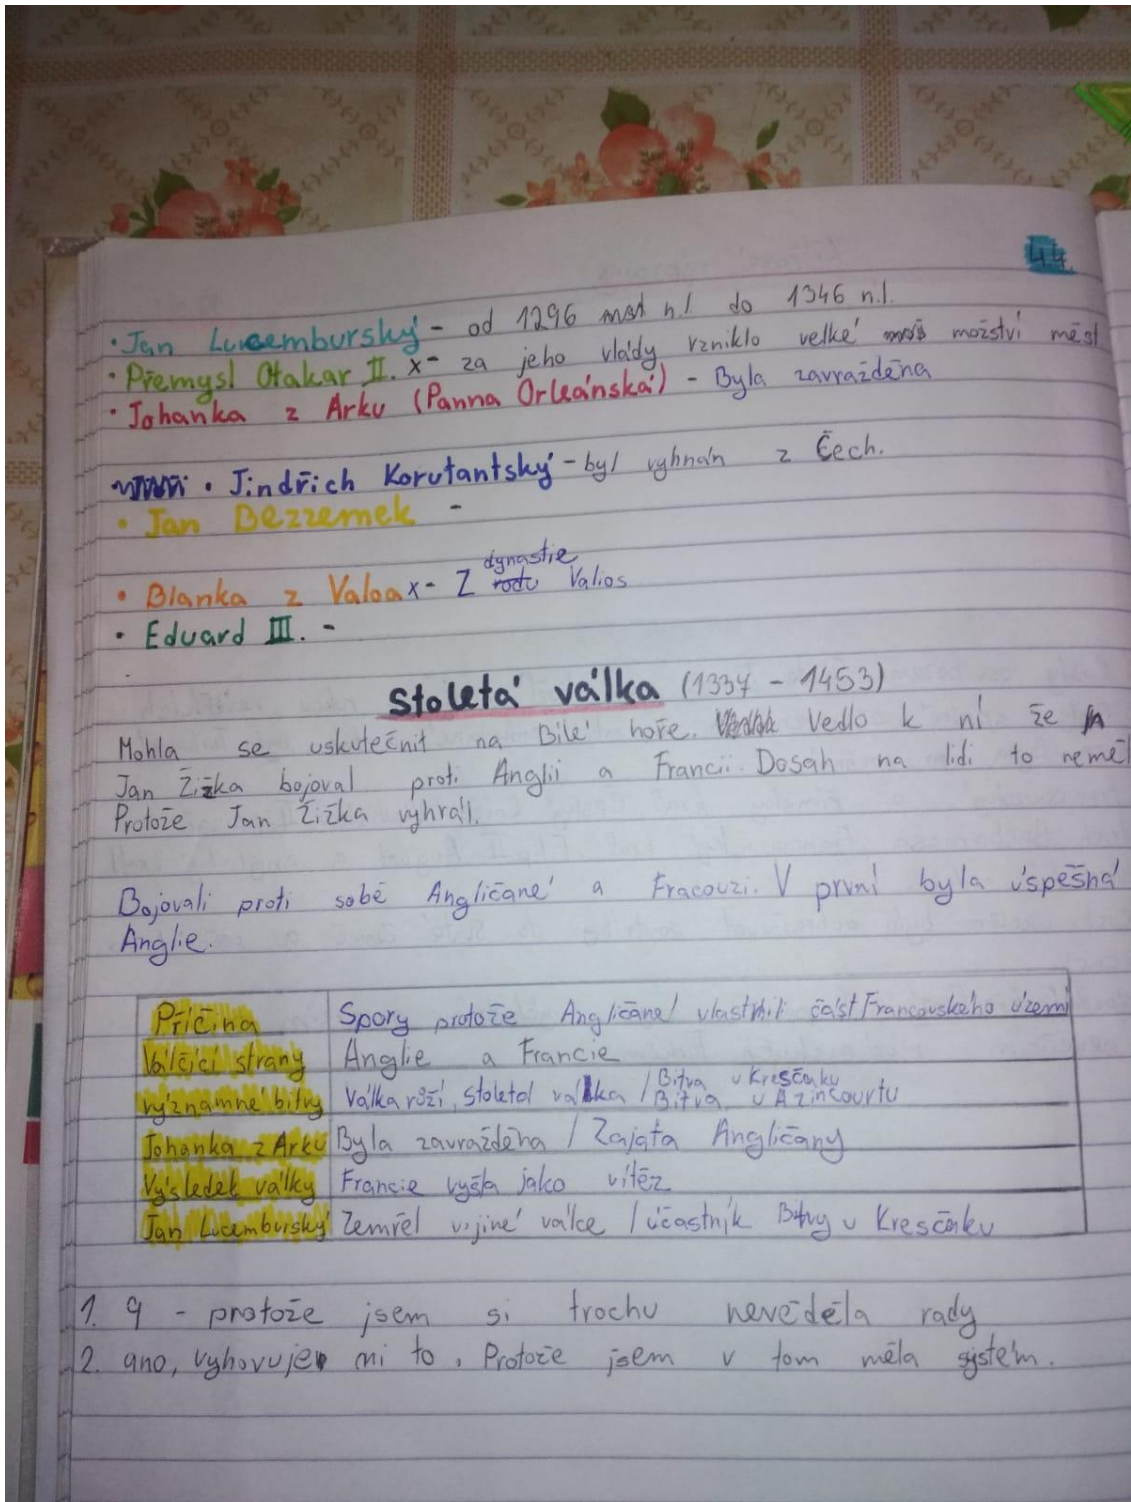 44.
• Jan Lucemburský - od 1296 n.l. do 1346 n.l.
• Přemysl Otakar II. x- za jeho vlády vzniklo velké možství měst
• Johanka z Arku (Panna Orleánská) - Byla zavražděna
• Jindřich Korutantský - byl vyhnán z Čech.
• Jan Bezzemek -
dynastie
• Blanka z Valoax - Z rodu Valios
• Eduard III. -
Stoletá válka (1337 - 1453)
Mohla se uskutečnit na Bílé hoře. Vedlo k ní že
Jan Žižka bojoval proti Anglii a Francii. Dosah na lidi to neměl
Protože Jan Žižka vyhrál.
Bojovali proti sobě Angličané a Fracouzi. V první byla úspěšná
Anglie.
Příčina Spory protože Angličané vlastnili část Francouského území
Válčící strany Anglie a Francie
významné bitvy Válka růží, stoletá válka / Bitva u Kresčaku
Bitva u Azincourtu
Johanka z Arku Byla zavražděna / Zajata Angličany
Výsledek války Francie vyšla jako vítěz
Jan Lucemburský Zemřel v jiné válce / účastník Bitvy u Kresčaku
1. 9 - protože jsem si trochu nevěděla rady
2. ano, vyhovuje mi to, Protože jsem v tom měla systém.